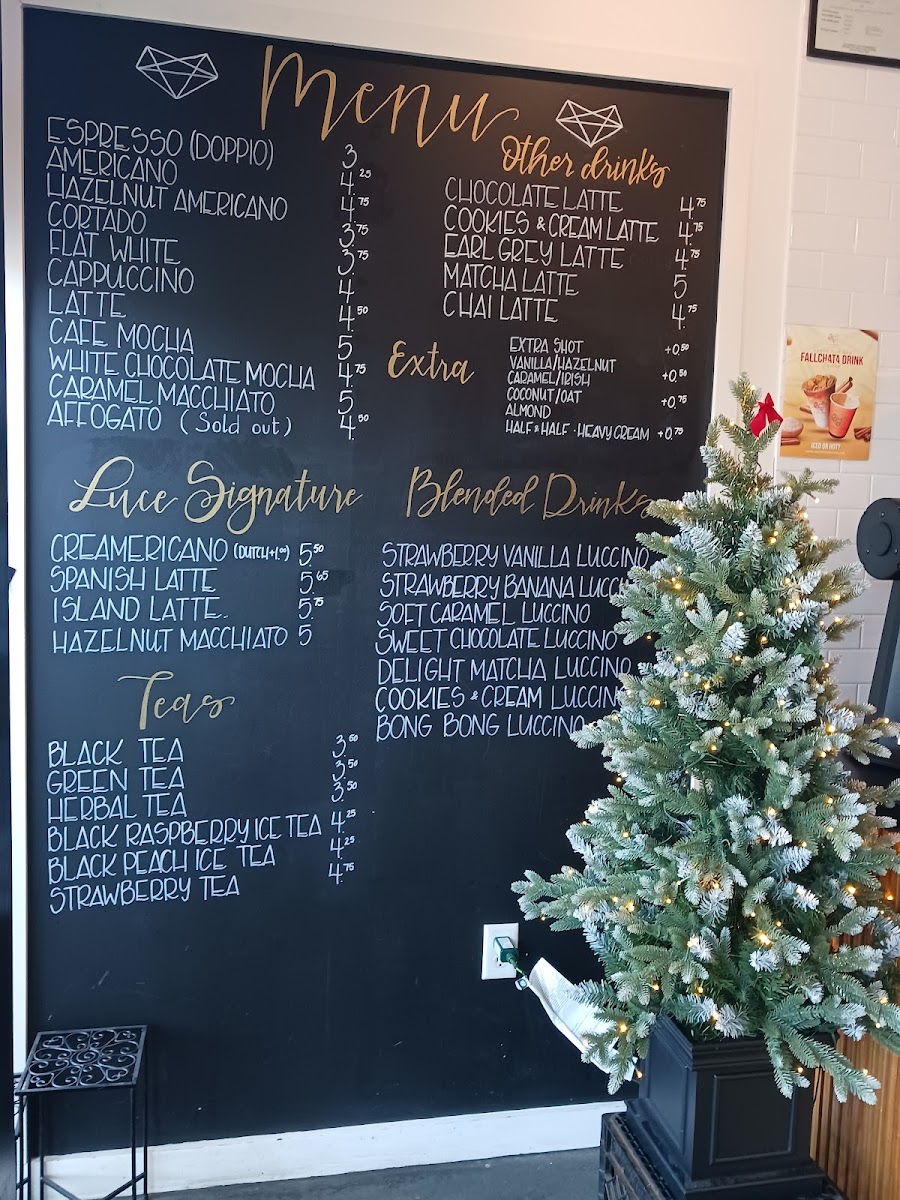 Menu
ESPRESSO (DOPPIO) 3.
AMERICANO 4.25
HAZELNUT AMERICANO 4.75
CORTADO 3.75
FLAT WHITE 3.75
CAPPUCCINO 4
LATTE 4.50
CAFE MOCHA 5
WHITE CHOCOLATE MOCHA 4.75
CARAMEL MACCHIATO 5
AFFOGATO (Sold out) 4.50
Other drinks
CHOCOLATE LATTE 4.75
COOKIES & CREAM LATTE 4.75
EARL GREY LATTE 4.75
MATCHA LATTE 5
CHAI LATTE 4.75
Extra
EXTRA SHOT +0.50
VANILLA/HAZELNUT
CARAMEL/IRISH +0.50
COCONUT/OAT
ALMOND +0.75
HALF & HALF · HEAVY CREAM +0.75
Luce Signature
CREAMERICANO (DUTCH+1.00) 5.50
SPANISH LATTE 5.65
ISLAND LATTE 5.75
HAZELNUT MACCHIATO 5
Blended Drinks
STRAWBERRY VANILLA LUCCINO
STRAWBERRY BANANA
SOFT CARAMEL LUCCINO
SWEET CHOCOLATE LUCCINO
DELIGHT MATCHA LUCCINO
COOKIES & CREAM LUCCINO
BONG BONG LUCCINO
Teas
BLACK TEA 3.50
GREEN TEA 3.50
HERBAL TEA 3.50
BLACK RASPBERRY ICE TEA 4.25
BLACK PEACH ICE TEA 4.25
STRAWBERRY TEA 4.75
FALLCHATA DRINK
ICED OR HOT?